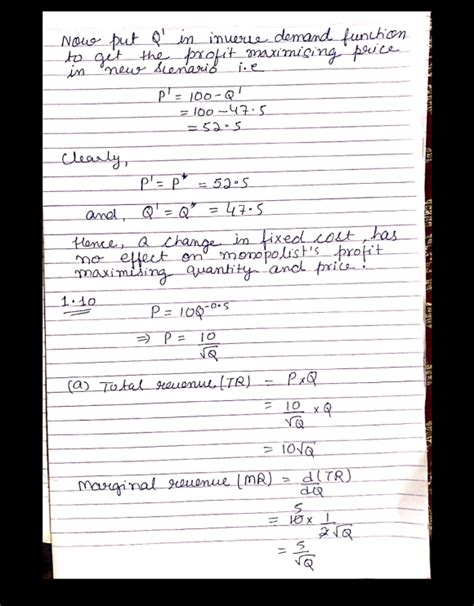 Now put Q' in inverse demand function
to get the profit maximising price
in new scenario i.e
P' = 100 - Q'
= 100 - 47.5
= 52.5
Clearly,
P' = P* = 52.5
and, Q' = Q* = 47.5
Hence, a change in fixed cost, has
no effect on monopolist's profit
maximising quantity and price.
1.10
P = 10Q^-0.5
⇒ P = 10/√Q
(a) Total revenue (TR) = P×Q
= 10/√Q × Q
= 10√Q
Marginal revenue (MR) = d(TR)/dQ
= 5 10 × 1/2√Q
= 5/√Q